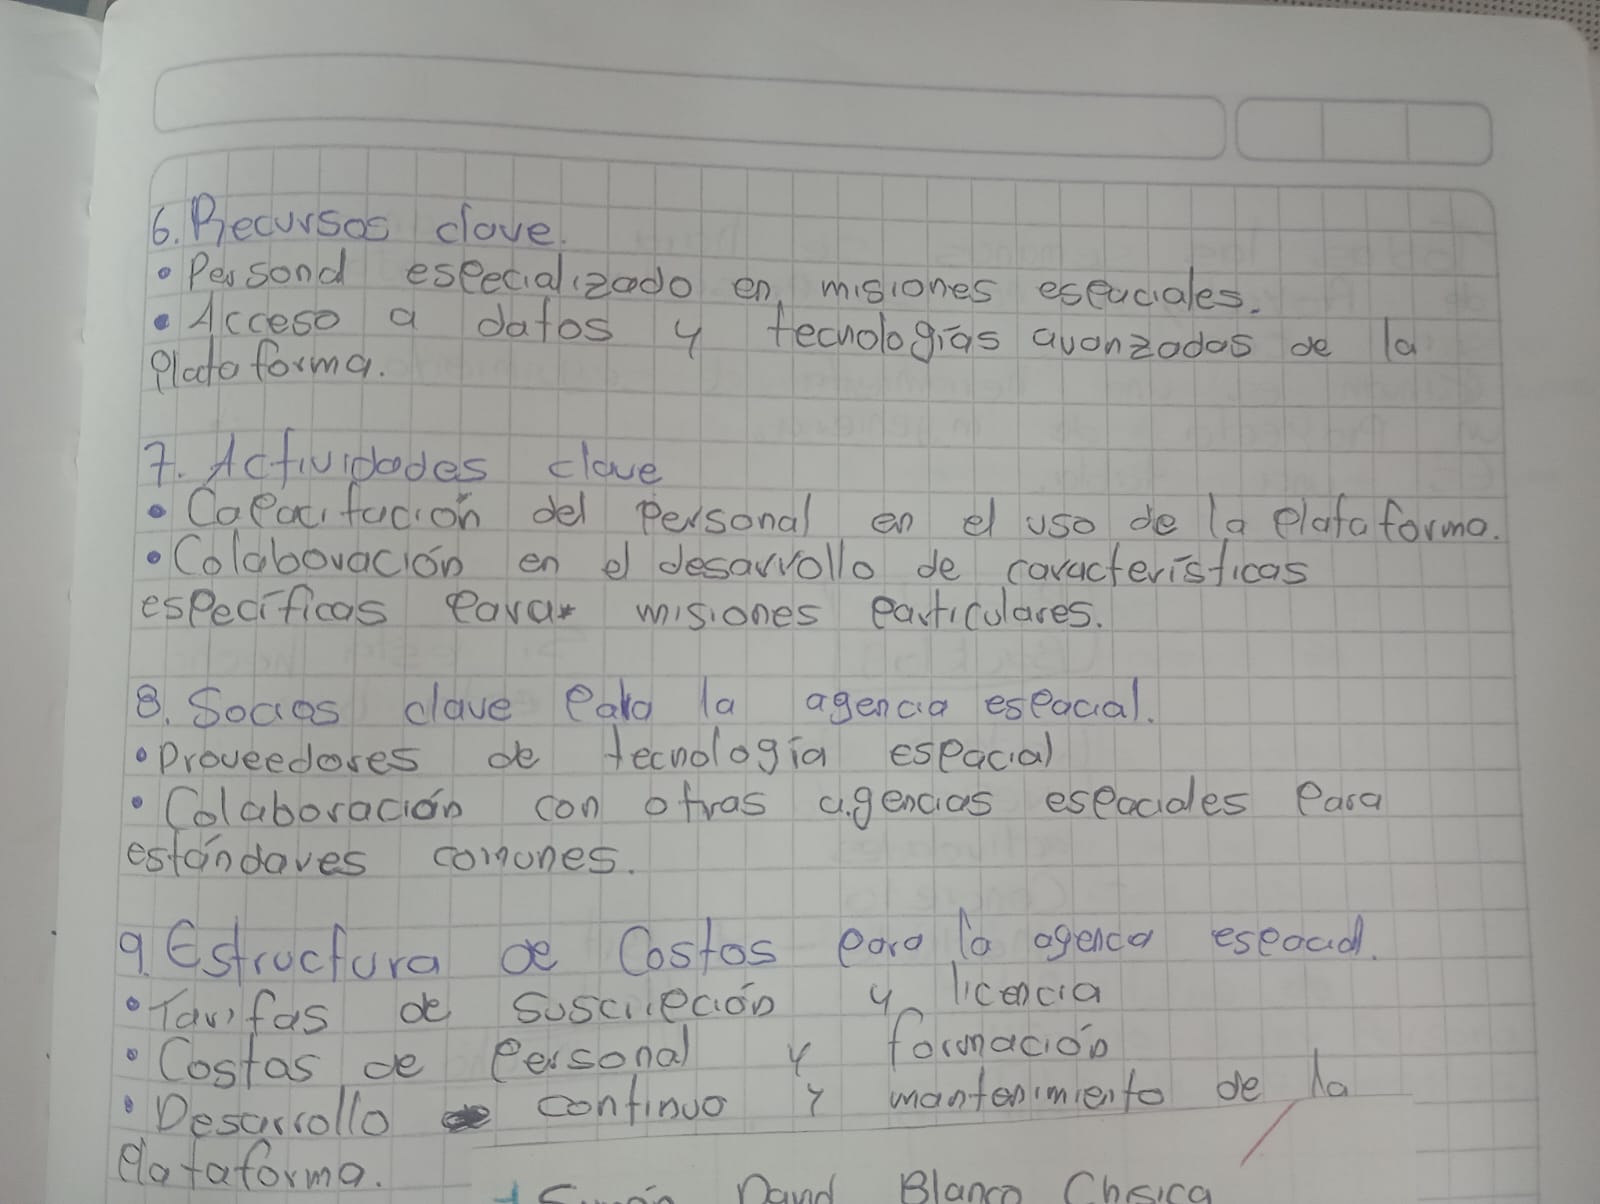 6. Recursos clave.
• Personal especializado en misiones espaciales.
• Acceso a datos y tecnologías avanzadas de la
Plataforma.
7. Actividades clave
• Capacitación del Personal en el uso de la Plataforma.
• Colaboración en el desarrollo de características
específicas Para misiones Particulares.
8. Socios clave Para la agencia espacial.
• Proveedores de tecnología espacial
• Colaboración con otras agencias espaciales Para
estándares comunes.
9. Estructura de Costos Para la agencia espacial.
• Tarifas de suscripción y licencia
• Costas de Personal y formación
• Desarrollo continuo y mantenimiento de la
Plataforma.
Simón David Blanco Chsica